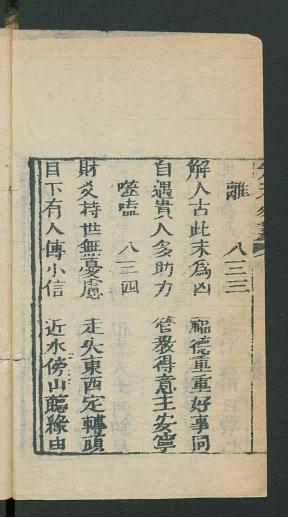 離 八三三
解人古此未為凶 福德重重好事同
自遇貴人多助力 管教得意主安寧
噬嗑 八三四
財爻持世無憂慮 走失東西定轉頭
目下有人傳小信 近水傍山聽緣由